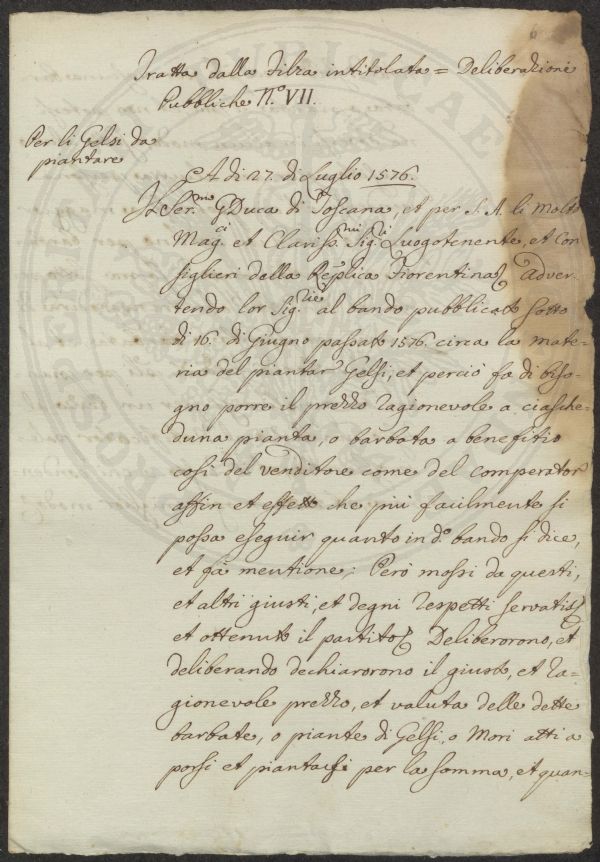 Tratta dalla Filza intitolata = Deliberazioni
Pubbliche N.º VII.
Per li Gelsi da
piantare
A di 27. di Luglio 1576.
Il Ser.mo G Duca di Toscana, et per S. A. li Molto
Mag.ci et Clariss.mi Sig.ri Luogotenente, et Con
siglieri della Rep.ca Fiorentina Adver-
tendo lor Sig.rie al bando pubblicato sotto
di 16. di Giugno passato 1576. circa la mate-
ria del piantar Gelsi, et perciò fa di biso-
gno porre il prezzo ragionevole a ciasche-
duna pianta, o barbata a benefitio
cosi del venditore come del comperator
affin et effetto che più facilmente si
possa eseguir quanto in d.º bando si dice,
et fà mentione; Però mossi da questi,
et altri giusti, et degni respetti servatis
et ottenuto il partito Deliberorono, et
deliberando dechiarorono il giusto, et ra=
gionevole prezzo, et valuta delle dette
barbate, o piante di Gelsi, o Mori atti a
porsi et piantarsi per la somma, et quan-